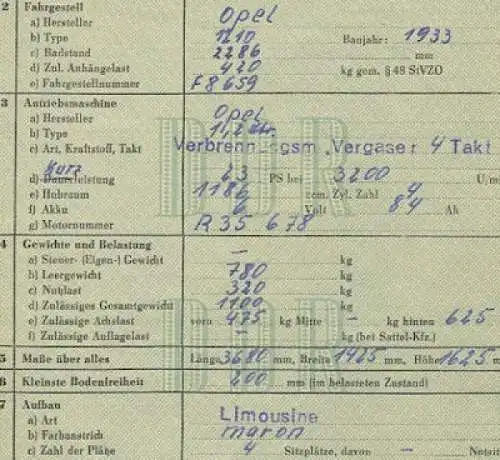 2 Fahrgestell
a) Hersteller Opel
b) Type 1210 Baujahr: 1933
c) Radstand 2286 mm
d) Zul. Anhängelast 420 kg gem. § 48 StVZO
e) Fahrgestellnummer F8659
3 Antriebsmaschine
a) Hersteller Opel
b) Type 1,2 Ltr.
c) Art, Kraftstoff, Takt Verbrennungsm., Vergaser 4 Takt
d) Kurz Dauerleistung 23 PS bei 3200 U/mi
e) Hubraum 1186 ccm. Zyl. Zahl 4
f) Akku 6 Volt 84 Ah
g) Motornummer R35 678
DDR
4 Gewichte und Belastung
a) Steuer- (Eigen-) Gewicht – kg
b) Leergewicht 780 kg
c) Nutzlast 320 kg
d) Zulässiges Gesamtgewicht 1100 kg
e) Zulässige Achslast vorn 475 kg Mitte – kg hinten 625
f) Zulässige Auflagelast – kg (bei Sattel-Kfz.)
DDR
5 Maße über alles Länge 3680 mm, Breite 1425 mm, Höhe 1625 m
6 Kleinste Bodenfreiheit 200 mm (im belasteten Zustand)
7 Aufbau
a) Art Limousine
b) Farbanstrich maron
c) Zahl der Plätze 4 Sitzplätze, davon – Notsit